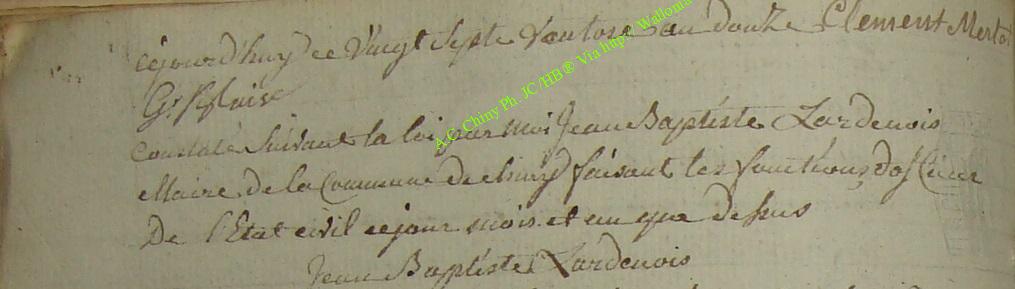 cejourd'huy ce vingt septe vantose an douze Clement Merlot
Gr
constaté suivant la loi par moi Jean Baptiste Lardenois
Maire de la Commune de Chiny faisant les fonctions d'officier
De l'Etat civil ce jour mois et an que dessus
Jean Baptiste Lardenois
A.C. Chiny Ph. JC/HB® Via http: Walloni